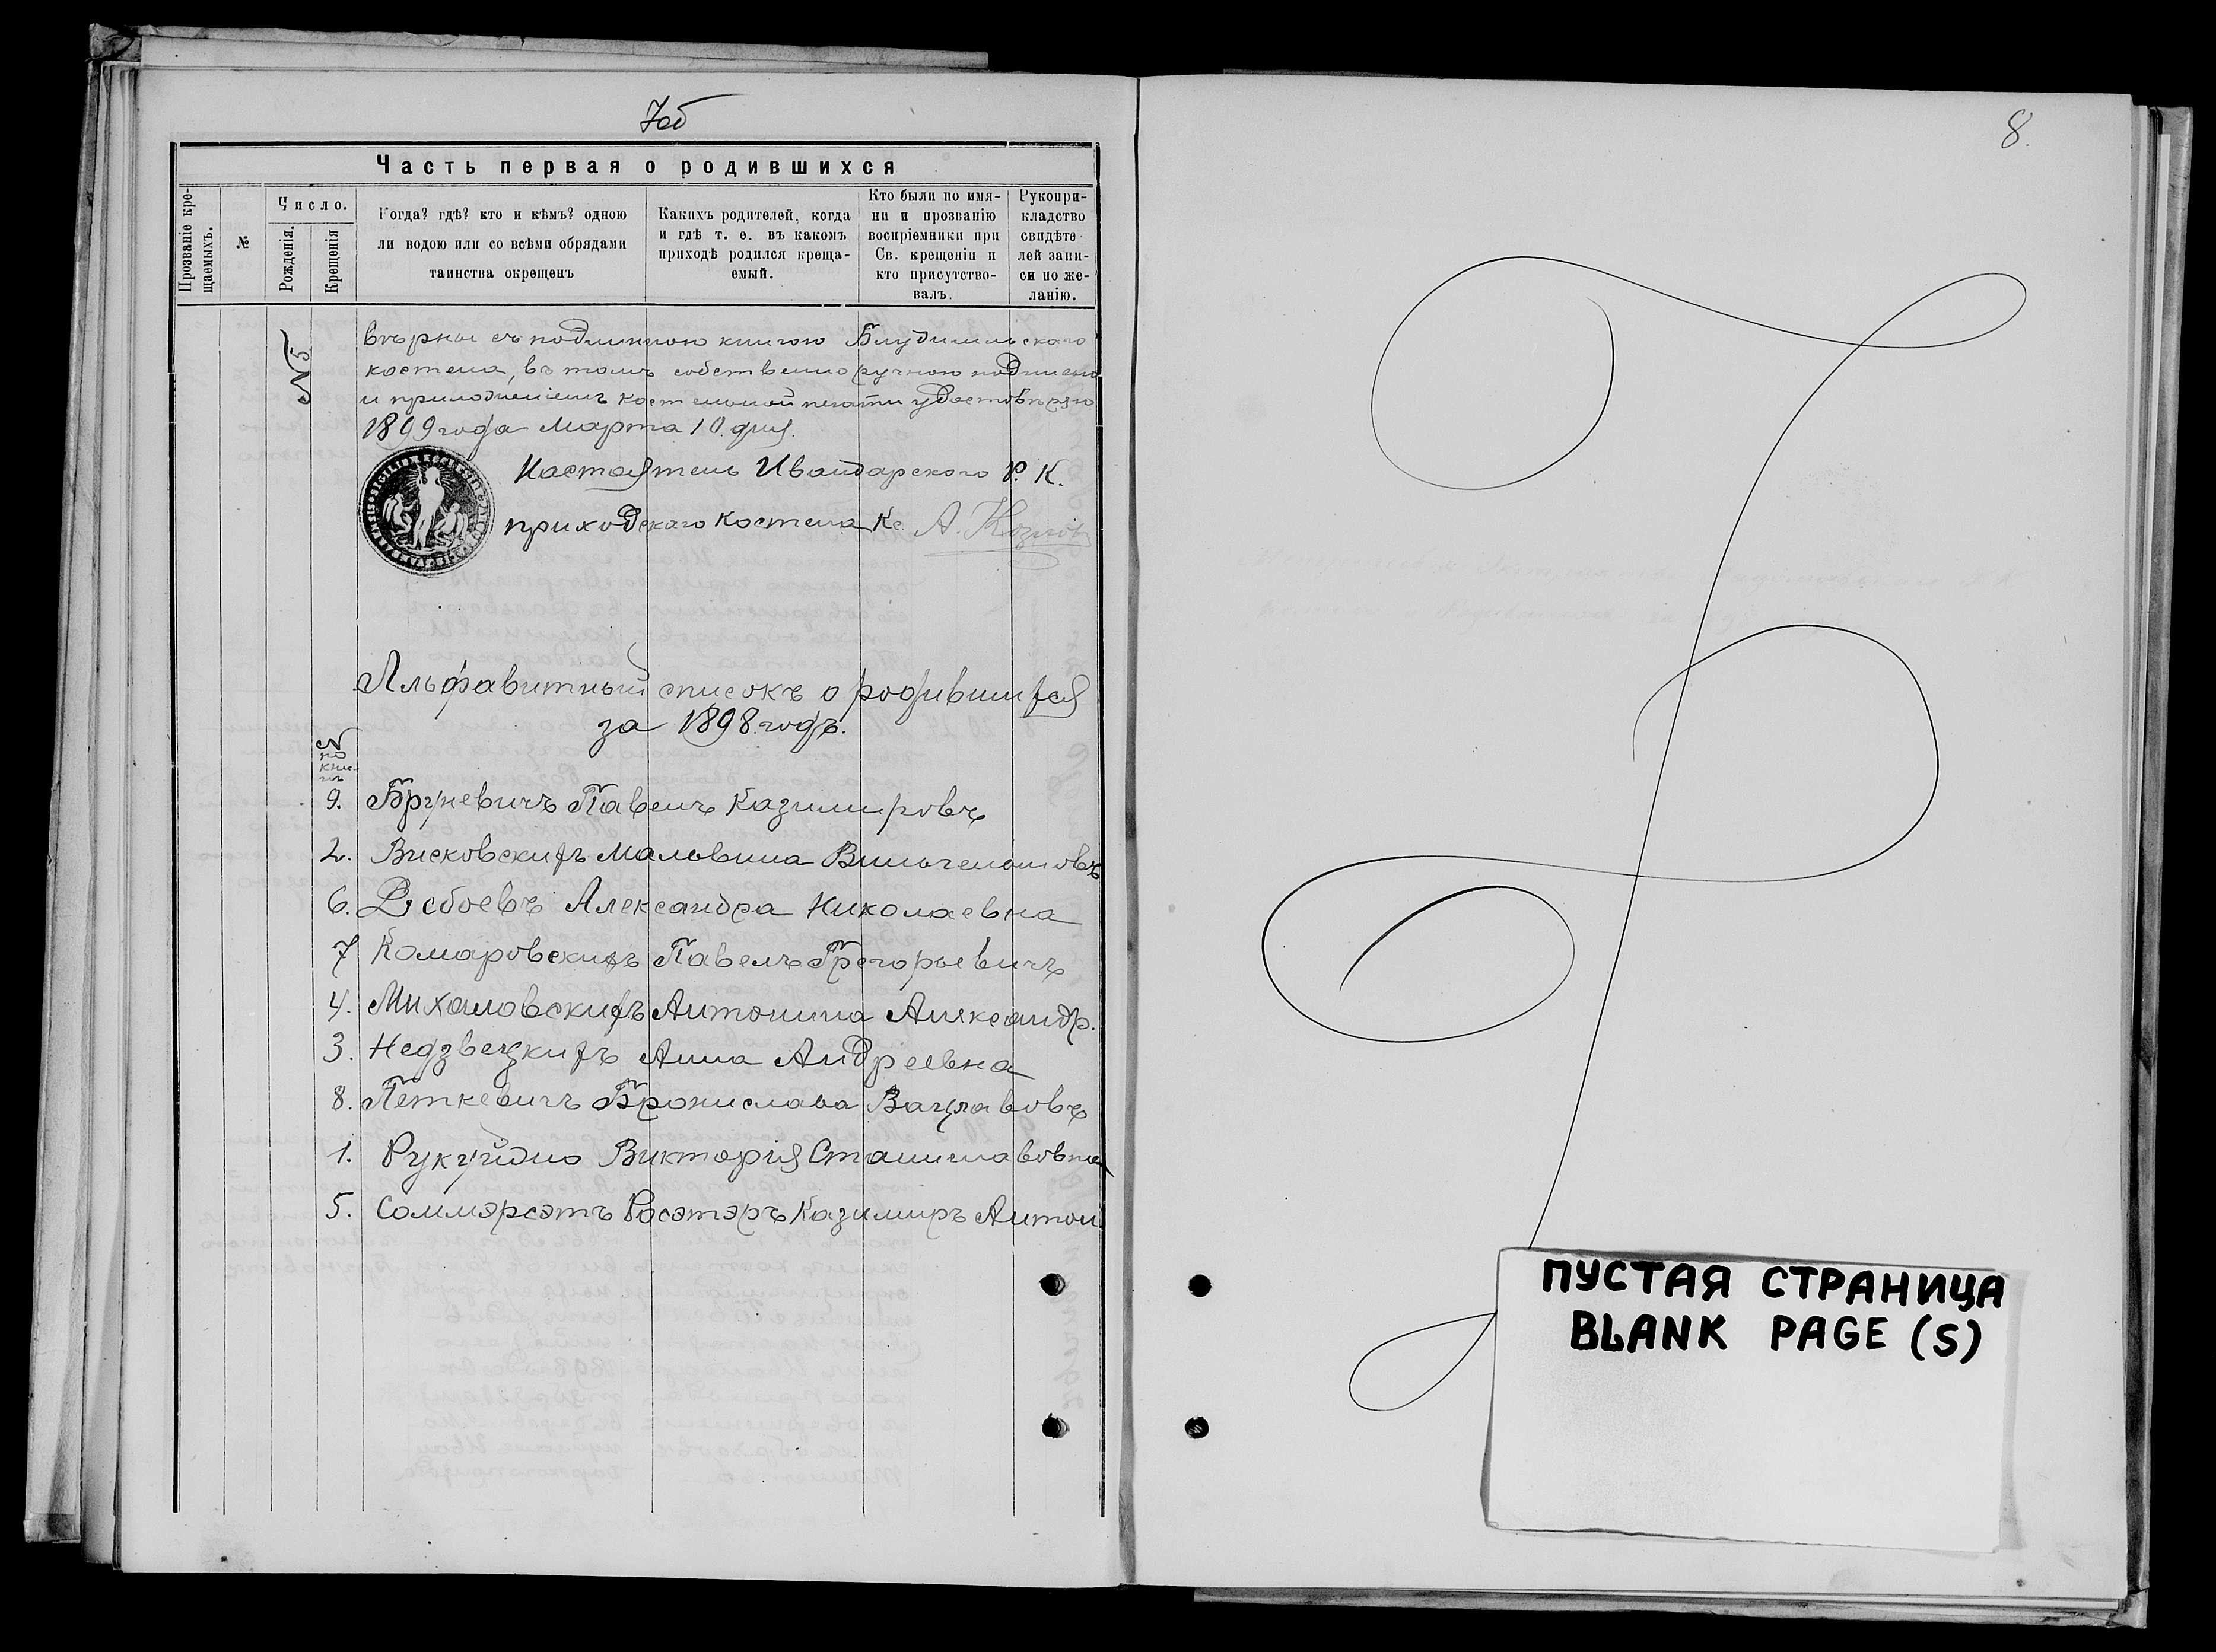 7об
Часть первая о родившихся
Прозваніе кре-
щаемыхъ.
№
Число.
Рожденія.
Крещенія
Когда? гдѣ? кто и кѣмъ? одною
ли водою или со всѣми обрядами
таинства окрещенъ
Какихъ родителей, когда
и гдѣ т. е. въ какомъ
приходѣ родился креща-
емый.
Кто были по имя-
ни и прозванію
воспріемники при
Св. крещеніи и
кто присутство-
валъ.
Рукопри-
кладство
свидѣте-
лей запи-
си по же-
ланію.
№5
вѣрны съ подлинною книгою
костела, въ томъ собственноручною подписью
и приложеніемъ костельной печати удостовѣряю
1899 года Марта 10. дня.
Настоятель Ивандарского Р. К.
приходскаго костела Кс. А. Козлов
Альфавитный списокъ о родившихся
за 1898 годъ.
№
по
кни-
гѣ
9. Бруневичъ Павелъ Казимировъ
2. Висковскихъ Мальвина
6. Александра Николаевна
7 Комаровскихъ Павелъ Грегорьевичъ
4. Михаловскихъ Антонина Александр.
3. Недзвецкихъ Анна Андреевна
8. Петкевичъ Бронислава Вацлавовъ
1. Рукуйдио Викторія Станиславовна
5. Соммэрсэтъ Росэтэръ Казимиръ Антон.
8.
ПУСТАЯ СТРАНИЦА
BLANK PAGE (S)